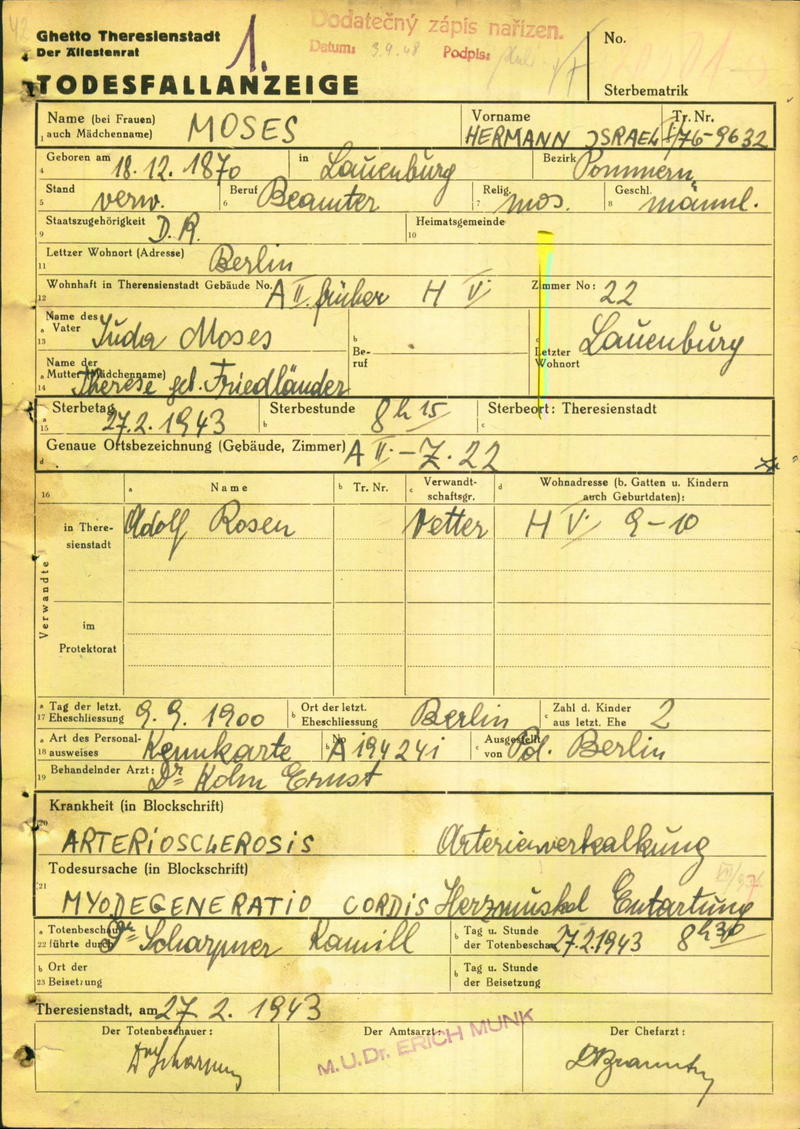 Ghetto Theresienstadt
Der Ältestenrat
1.
Dodatečný zápis nařízen.
Datum: 3.9.48 Podpis:
No.
TODESFALLANZEIGE
Sterbematrik
Name (bei Frauen) MOSES Vorname Tr. Nr.
1 auch Mädchenname) HERMANN ISRAEL I/76-9632
4 Geboren am 18.12.1870 in Lauenburg Bezirk Pommern
5 Stand verw. 6 Beruf Beamter 7 Relig. mos. 8 Geschl. männl.
9 Staatszugehörigkeit D.R. 10 Heimatsgemeinde
11 Lettzer Wohnort (Adresse) Berlin
12 Wohnhaft in Theresienstadt Gebäude No. A II. früher H V Zimmer No: 22
13 a Name des Vater Juda Moses b Beruf c Letzter Wohnort Lauenburg
14 a Name der Mutter (Mädchenname) Therese geb. Friedländer
15 a Sterbetag 27.2.1943 b Sterbestunde 8 h 15 c Sterbeort: Theresienstadt
d Genaue Ortsbezeichnung (Gebäude, Zimmer) A II. - Z. 22
16 a Name b Tr. Nr. c Verwandtschaftsgr. d Wohnadresse (b. Gatten u. Kindern auch Geburtdaten):
Verwandte
in Theresienstadt Adolf Rosen Vetter H V 9-10
im Protektorat
17 a Tag der letzt. Eheschliessung 9.9.1900 b Ort der letzt. Eheschliessung Berlin c Zahl d. Kinder aus letzt. Ehe 2
18 a Art des Personalausweises Kennkarte b No A 194241 c Ausgestellt von Pol. Berlin
19 Behandelnder Arzt: Dr Kohn Ernst
20 Krankheit (in Blockschrift)
ARTERIOSCLEROSIS Arterienverkalkung
21 Todesursache (in Blockschrift)
MYODEGENERATIO CORDIS Herzmuskel Entartung
22 a Totenbeschau führte durch Dr Kamill b Tag u. Stunde der Totenbeschau 27.2.1943 8 h 30
23 b Ort der Beisetzung b Tag u. Stunde der Beisetzung
Theresienstadt, am 27. 2. 1943
Der Totenbeschauer: Der Amtsarzt: Der Chefarzt:
M.U.Dr. ERICH MUNK